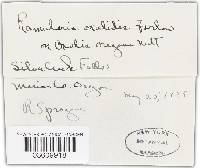 Ramularia oxalidis Farlow
on Oxalis oregana Nutt
Silver Creek Falls
Marion Co. Oregon
R Sprague
May 23, 1935
NEW YORK
BOTANICAL
GARDEN